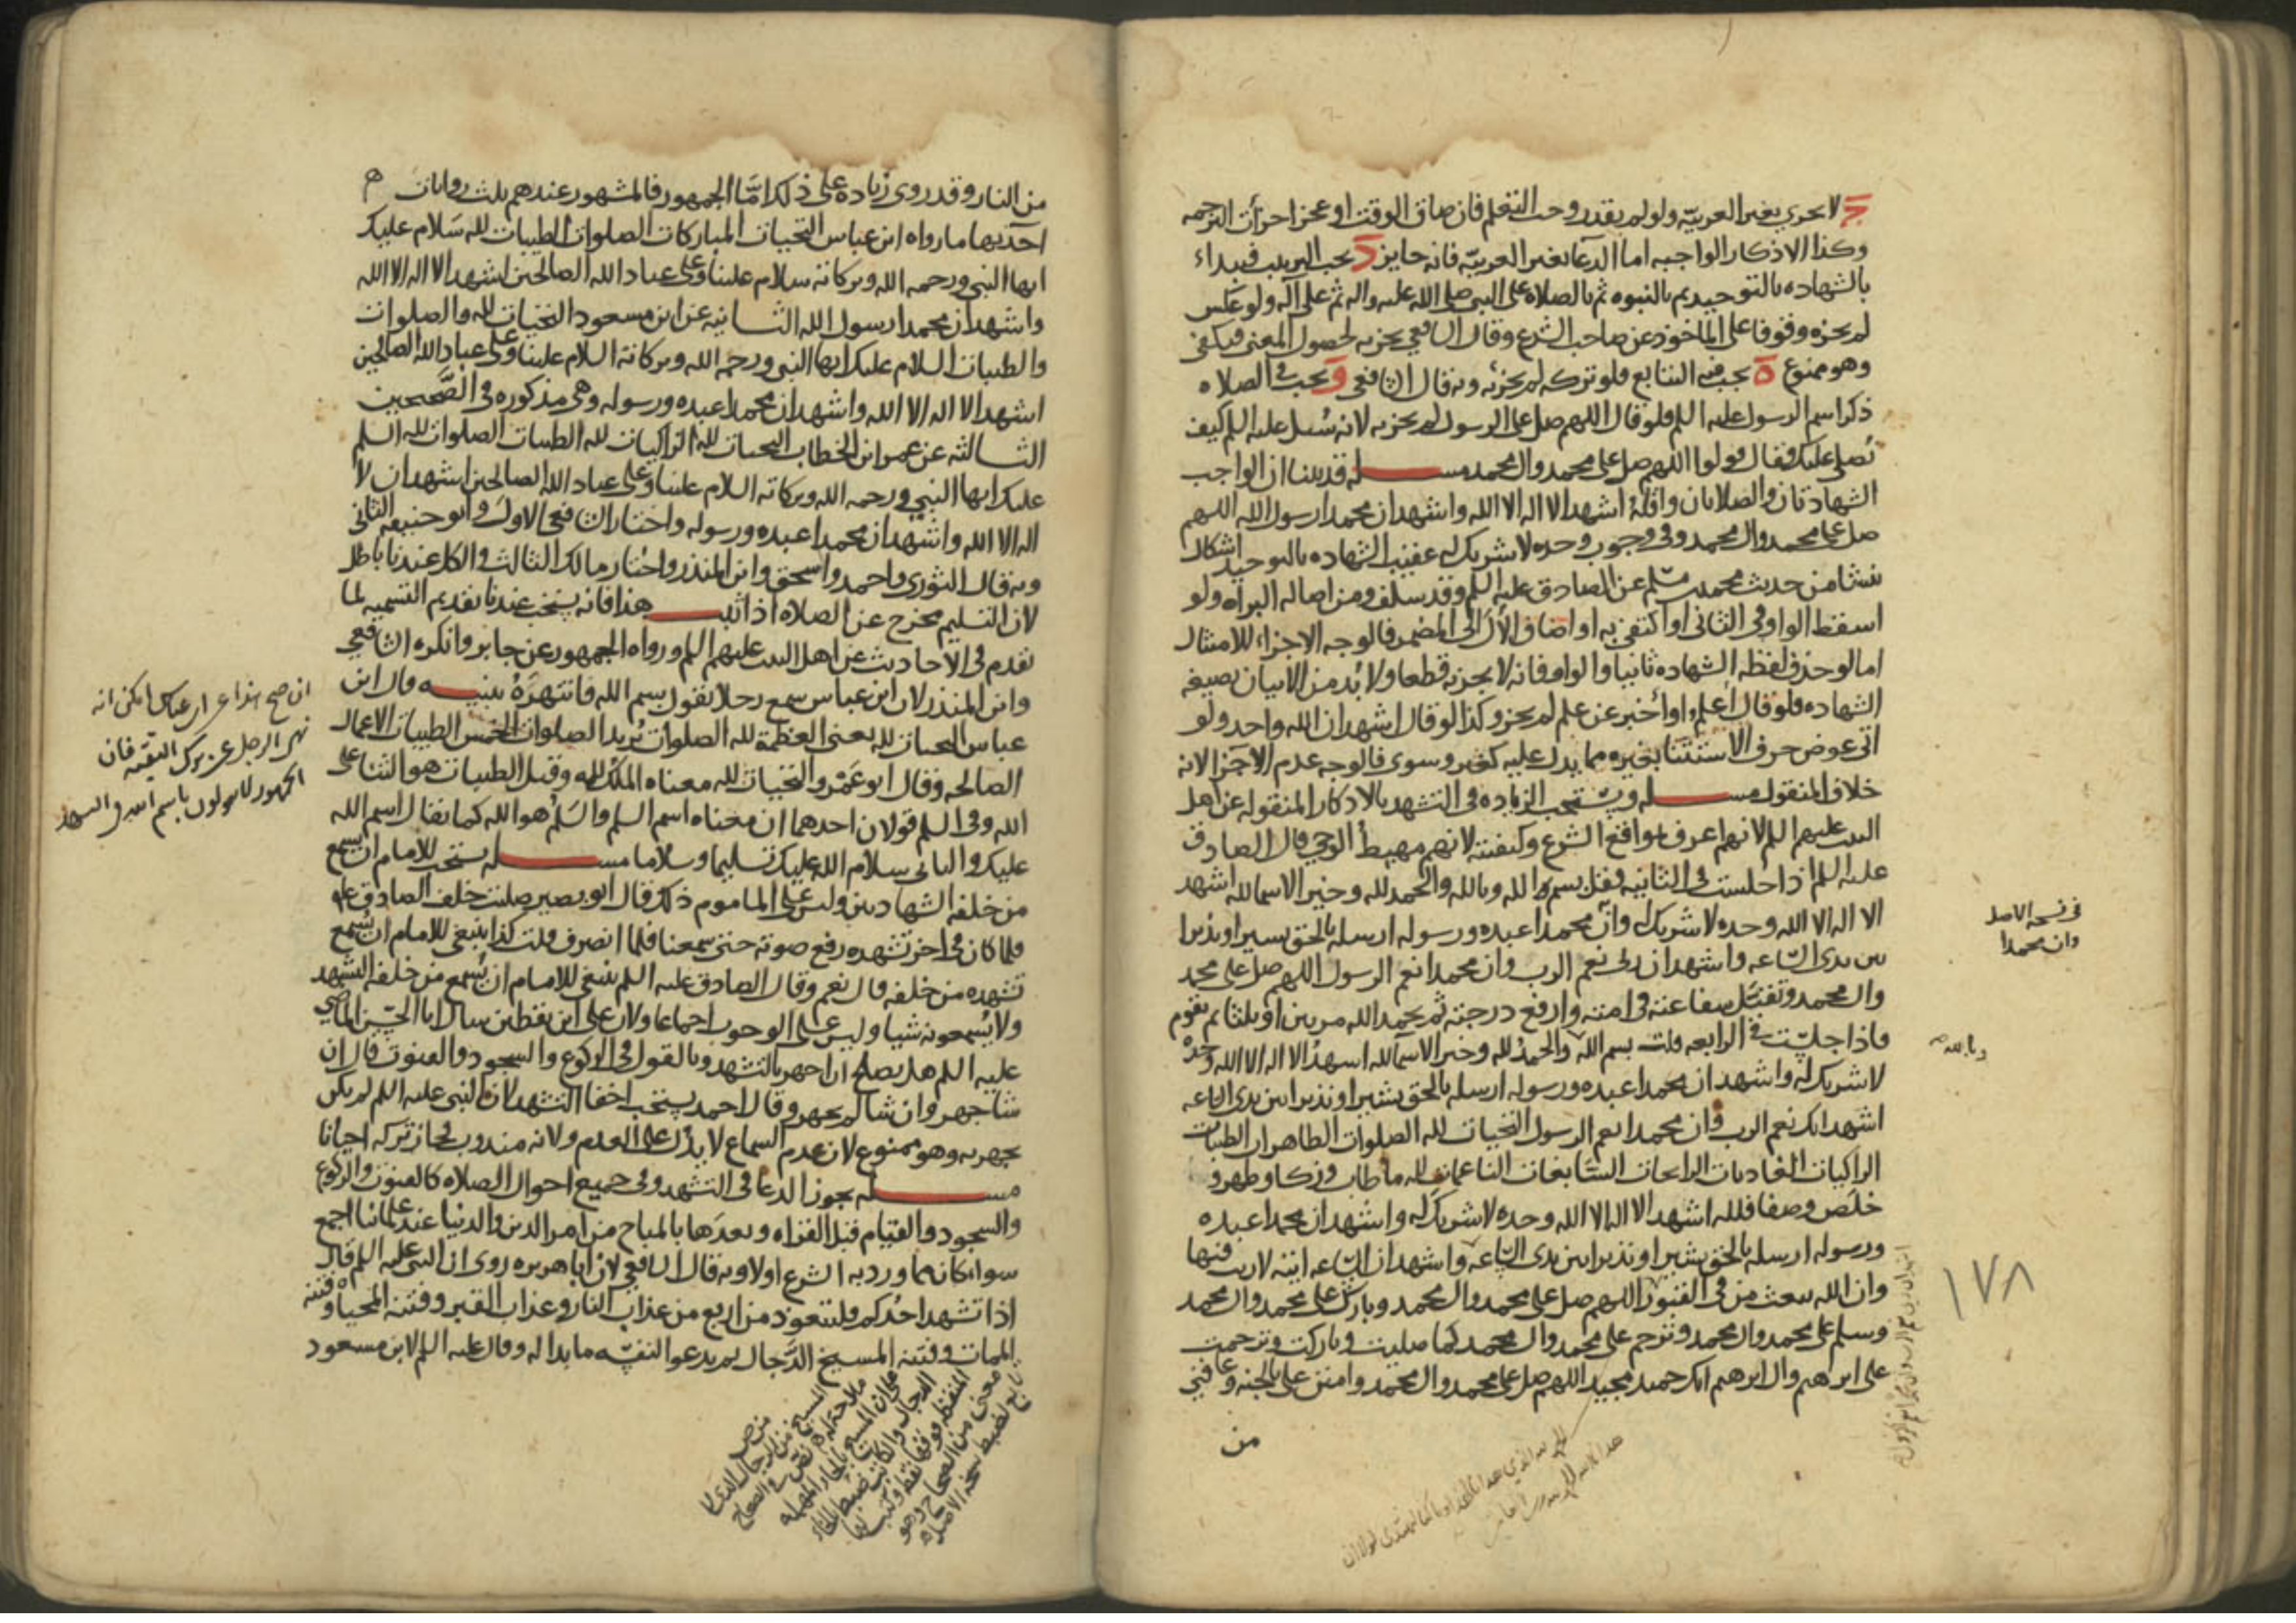 ج لا يجزي بغير العربيه ولو لم يقدر وجب التعلم فان ضاق الوقت او عجز اجزأت الترجمه
وكذا الاذكار الواجبه اما الدعا بغير العربيه فانه جايز د يجب الترتيب فيبداء
بالشهاده بالتوحيد ثم بالنبوه ثم بالصلاة على النبي صلى الله عليه واله ثم على آله ولو عكس
لم يجزه وقوفا على الماخوذ عن صاحب الشرع وقال الشافعي يجزيه لحصول المعنى فيكفى
وهو ممنوع ه يجب فيه التتابع فلو تركه لم يجزئه وبه قال الشافعي و يجب في الصلاه
ذكر اسم الرسول عليه السلم فلو قال اللهم صل على الرسول لم يجزيه لانه سُئل عليه السلم كيف
نُصلى عليك فقال قولوا اللهم صل على محمد وال محمد مسـله قد بينا ان الواجب
الشهادتان والصلاتان واقلّه اشهد الا اله الا الله واشهد ان محمدا رسول الله اللهم
صل على محمد وال محمد وفي وجوب وحده لا شريك له عقيب الشهاده بالتوحيد اشكال
ينشا من حديث محمد بن مسلم عن الصادق عليه السلم وقد سلف ومن اصاله البراه ولو
اسقط الواو فى الثانى او اكتفى به او اضاف الآل الى المضمر فالوجه الاجزاء للامتثال
اما لو حذف لفظه الشهاده ثانيا والواو فانه لا يجزيه قطعا ولا بُد من الاتيان بصيغه
الشهاده فلو قال اعلم او أخبر عن علم لم يجز وكذا لو قال اشهد ان الله واحد ولو
اتى عوض حرف الاستثنا بغيره مما يدل عليه كغير وسوى فالوجه عدم الاجزا لانه
خلاف المنقول مسـله ويستحب الزياده فى التشهد بالاذكار المنقوله عن اهل
البيت عليهم السلم لانهم اعرف بمواقع الشرع وكيفيته لانهم مهبط الوحي قال الصادق
عليه السلم اذا جلست فى الثانيه فقل بسم الله وبالله والحمد لله وخير الاسما لله اشهد
الا اله الا الله وحده لا شريك له وانّ محمدا عبده ورسوله ارسله بالحق بشيرا ونذيرا
بين يدى الساعه واشهد ان ربى نعم الرب وان محمدا نعم الرسول اللهم صل على محمد
وال محمد وتقبّل شفاعته فى امته وارفع درجته ثم يحمد الله مرتين او ثلثا ثم تقوم
فاذا جلست في الرابعه قلت بسم الله والحمد لله وخير الاسماء لله اشهد الا اله الا الله وحده
لا شريك له واشهد ان محمدا عبده ورسوله ارسله بالحق بشيرا ونذيرا بين يدى الساعه
اشهد انك نعم الرب وان محمدا نعم الرسول التحيات لله الصلوات الطاهرات الطيبات
الزاكيات الغاديات الرايحات السّابغات الناعمات لله ما طاب وزكا وطهر و
خلَص وصفا فلله اشهد الا اله الا الله وحده لا شريك له واشهد ان محمدا عبده
ورسوله ارسله بالحق بشيرا ونذيرا بين يدى الساعه واشهد ان الساعه اتيه لا ريب فيها
وان الله يبعث من فى القبور اللهم صل على محمد وال محمد وبارك على محمد وال محمد
وسلم على محمد وال محمد وترحم على محمد وال محمد كما صليت وباركت وترحمت
على ابرهيم وال ابرهيم انك حميد مجيد اللهم صل على محمد وال محمد وامنن على بالجنه وعافنى
من
فى نسخه الاصل
وان محمدا
وبالله
١٧٨
اشهد ان ربى نعم الرب وان محمدا نعم الرسول
الحمد لله الذي هدانا لهذا وما كنا لنهتدى لولا ان
هدانا الله الحمد لله رب العالمين
من النار وقد روى زياده على ذلك امّا الجمهور فالمشهور عندهم ثلث روايات
احديها ما رواه ابن عباس التحيات المباركات الصلوات الطيبات لله سَلام عليك
ايها النبي ورحمه الله وبركاته سلام علينا وعلى عباد الله الصالحين اشهد الا اله الا الله
واشهد ان محمدا رسول الله الثـانيه عن ابن مسعود التحيات لله والصلوات
والطيبات السلام عليك ايها النبي ورحمه الله وبركاته السلام علينا وعلى عباد الله الصالحين
اشهد الا اله الا الله واشهد ان محمدا عبده ورسوله وهى مذكوره فى الصَّحيحين
الثـالثه عن عمر ابن الخطاب التحيات لله الزاكيات لله الطيبات الصلوات لله السلم
عليك ايها النبي ورحمه الله وبركاته السلام علينا وعلى عباد الله الصالحين اشهد ان لا
اله الا الله واشهد ان محمدا عبده ورسوله واختار الشافعى الاول وابو حنيفه الثانى
وبه قال الثورى واحمد واسحق وابن المنذر واختار مالك الثالث والكل عندنا باطل
لان التسليم مخرج عن الصلاه اذا ثبـت هذا فانه يستحب عندنا تقديم التسميه لما
تقدم فى الاحاديث عن اهل البيت عليهم السلم ورواه الجمهور عن جابر وانكره الشافعى
وابن المنذر لان ابن عباس سمع رجلا يقول بسم الله فانتَهرَهُ تنبيـه قال ابن
عباس التحيات لله يعنى العظمة لله الصلوات يُريد الصلوات الخمس الطيبات الاعمال
الصالحه وقال ابو عَمْرو التحيات لله معناه الملك لله وقيل الطيبات هو الثنا على
الله وفى السلم قولان احدهما ان معناه اسم السلم والسَلم هو الله كما يقال اسم الله
عليك والثانى سلام الله عليك تسليما وسلاما مسـله يستحب للامام ان يسمع
من خلفه الشهادتين وليس على الماموم ذلك قال ابو بصير صليت خلف الصادق عليه
فلما كان فى اخر تشهده رفع صوته حتى سمعنا فلما انصرف قلت كذا ينبغى للامام ان يُسمع
تشهده من خلفه قال نعم وقال الصادق عليه السلم ينبغى للامام ان يُسمع من خلفه التشهد
ولا يُسمعونه شيا وليس على الوجوب اجماعا ولان على ابن يقطين سال ابا الحسن الماضي
عليه السلم هل يصلح ان اجهر بالتشهد وبالقول فى الركوع والسجود والقنوت قال ان
شا جهر وان شا لم يجهر وقال احمد يستحب اخفا التشهد لان النبى عليه السلم لم يكن
يجهر به وهو ممنوع لان عدم السماع لا يدُل على العدم ولانه مندوب فجاز تركه احيانا
مسـله يجوز الدعا فى التشهد وفى جميع احوال الصلاه كالقنوت والركوع
والسجود والقيام قبل القراه وبعدَها بالمباح من امر الدين والدنيا عند علمائنا اجمع
سواء كان مما ورد به الشرع اولا وبه قال الشافعى لان ابا هريره روى ان النبى عليه السلم قال
اذا تشهد احدُكم فليتعوذ من اربع من عذاب النار وعذاب القبر وفتنة المحيا وفتنه
الممات وفتنه المسيخ الدَّجال ثم يدعوا لنفسه ما بدا له وقال عليه السلم لابن مسعود
ان صح هذا عن ابن عباس امكن انه
نهى الرجل عن ترك التقيه فان
الجمهور لا يقولون باسم الله فى التشهد